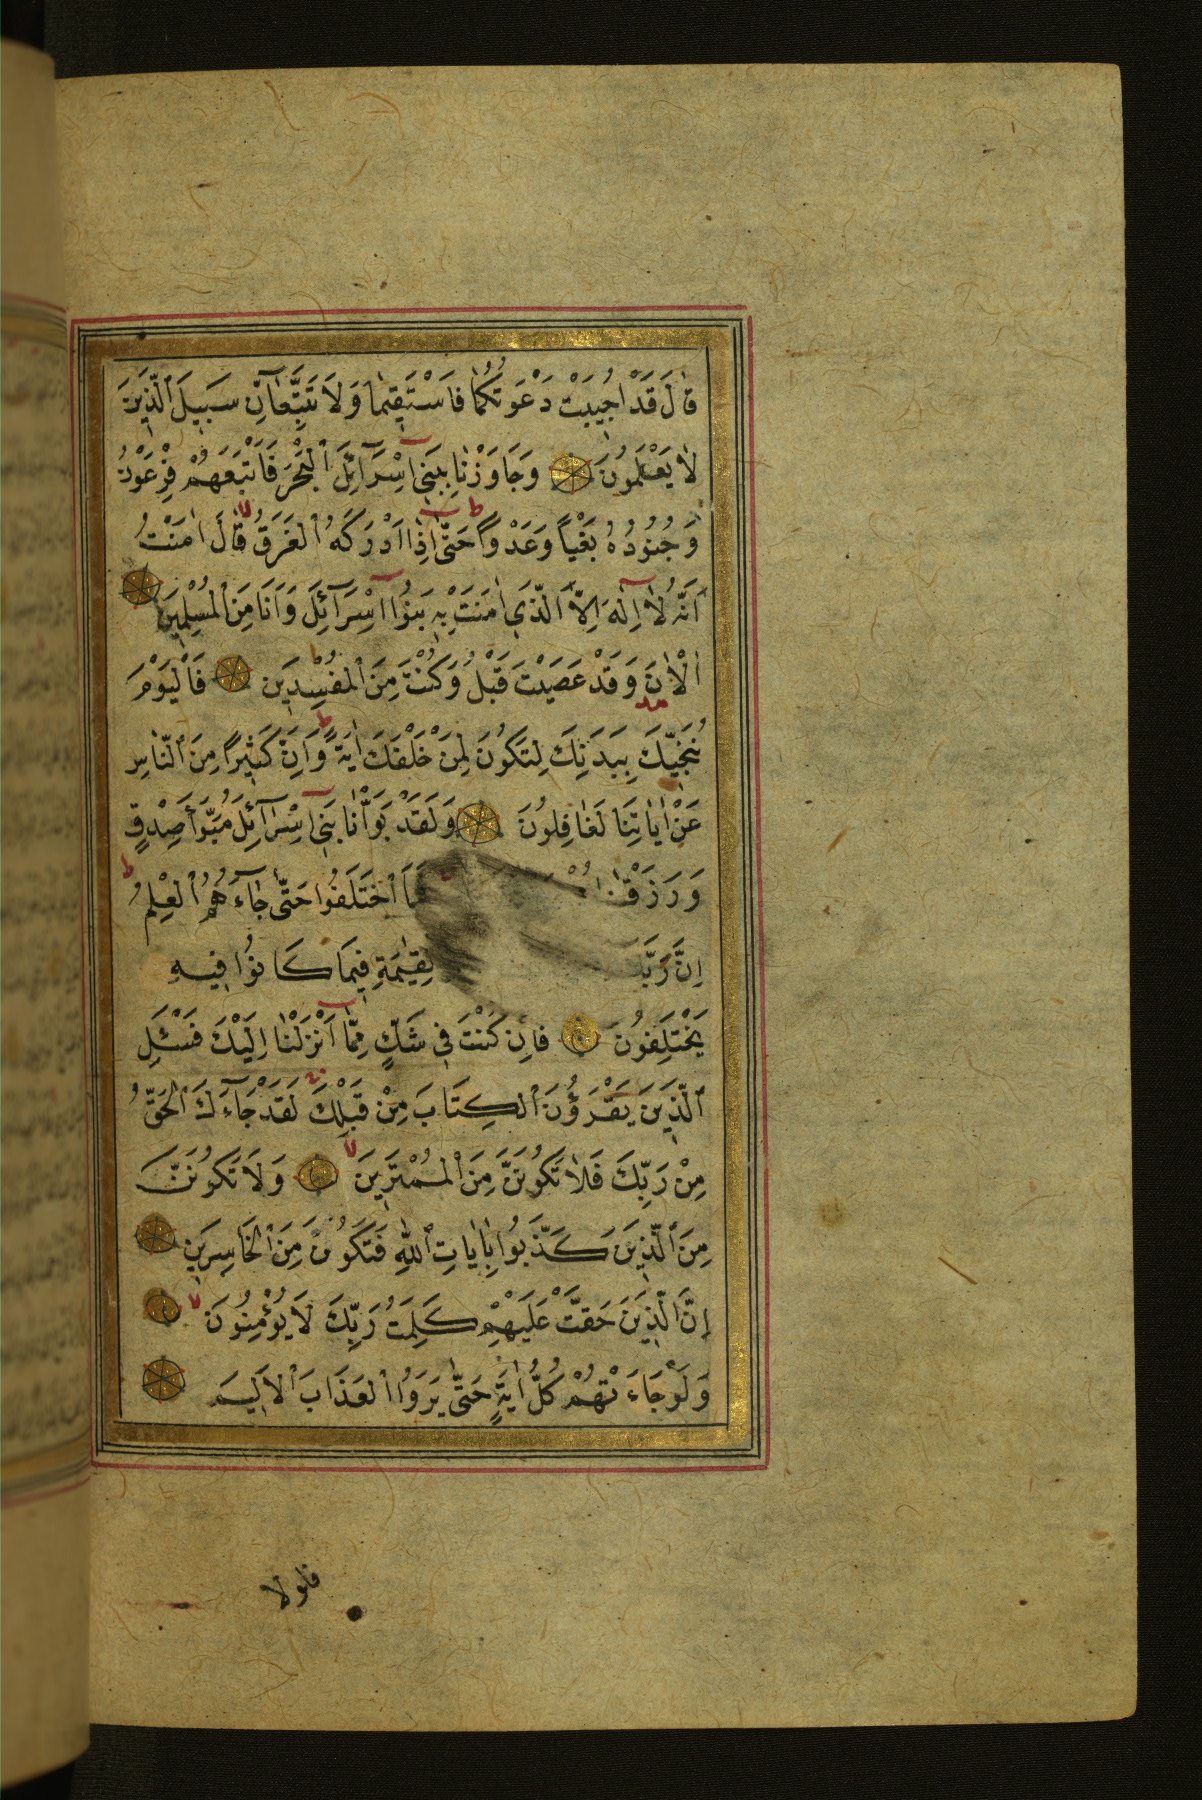 قَالَ قَدْ اُجِيبَتْ دَعْوَتُكُمَا فَاسْتَقِيمَا وَلَا تَتَّبِعَآنِّ سَبِيلَ ٱلَّذِينَ
لَا يَعْلَمُونَ وَجَاوَزْنَا بِبَنِىٓ اِسْرَآئِلَ ٱلْبَحْرَ فَاَتْبَعَهُمْ فِرْعَوْنُ
وَجُنُودُهُ بَغْيًا وَعَدْوًا حَتَّىٓ اِذَا اَدْرَكَهُ ٱلْغَرَقُ قَالَ اٰمَنْتُ
اَنَّهُ لَآ اِلٰهَ اِلَّا ٱلَّذِىٓ اٰمَنَتْ بِهِ بَنُوٓا اِسْرَآئِلَ وَاَنَا مِنَ ٱلْمُسْلِمِينَ
اٰلْاٰنَ وَقَدْ عَصَيْتَ قَبْلُ وَكُنْتَ مِنَ ٱلْمُفْسِدِينَ فَالْيَوْمَ
نُنَجِّيكَ بِبَدَنِكَ لِتَكُونَ لِمَنْ خَلْفَكَ اٰيَةً وَاِنَّ كَثِيرًا مِنَ ٱلنَّاسِ
عَنْ اٰيَاتِنَا لَغَافِلُونَ وَلَقَدْ بَوَّاْنَا بَنِىٓ اِسْرَآئِلَ مُبَوَّاَ صِدْقٍ
وَرَزَقْنَا ٱخْتَلَفُوا حَتَّى جَآءَهُمُ ٱلْعِلْمُ
اِنَّ رَبَّكَ لْقِيٰمَةِ فِيمَا كَانُوا فِيهِ
يَخْتَلِفُونَ فَاِنْ كُنْتَ فِى شَكٍّ مِمَّآ اَنْزَلْنَا اِلَيْكَ فَسْئَلِ
ٱلَّذِينَ يَقْرَؤُنَ ٱلْكِتَابَ مِنْ قَبْلِكَ لَقَدْ جَآءَكَ ٱلْحَقُّ
مِنْ رَبِّكَ فَلَا تَكُونَنَّ مِنَ ٱلْمُمْتَرِينَ وَلَا تَكُونَنَّ
مِنَ ٱلَّذِينَ كَذَّبُوا بِاٰيَاتِ ٱللّٰهِ فَتَكُونَ مِنَ ٱلْخَاسِرِينَ
اِنَّ ٱلَّذِينَ حَقَّتْ عَلَيْهِمْ كَلِمَتُ رَبِّكَ لَا يُؤْمِنُونَ
وَلَوْ جَاءَتْهُمْ كُلُّ اٰيَةٍ حَتَّى يَرَوُا ٱلْعَذَابَ ٱلْاَلِيمَ
فلولا